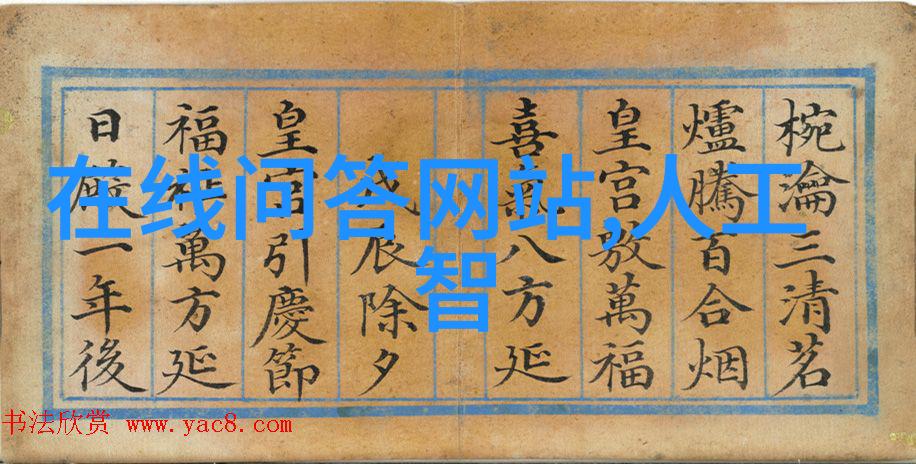 椀瀹三清茗
爐騰百合烟
皇宮敷萬福
喜氣八方延
戊辰除夕
皇宮引慶節
福萬方延
日一年後
在线问答网站,人工
智
书法欣赏 www.yac8.com